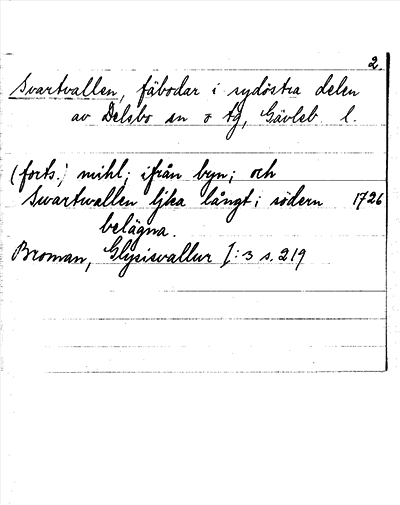 2.
Svartvallen, fäbodar i sydöstra delen
av Delsbo sn o tg, Gävleb. l.
(forts.) mihl; ifrån byn; och
Swartwallen ljka långt; södern 1726
belägna.
Broman, Glysisvallur I:3 s. 219